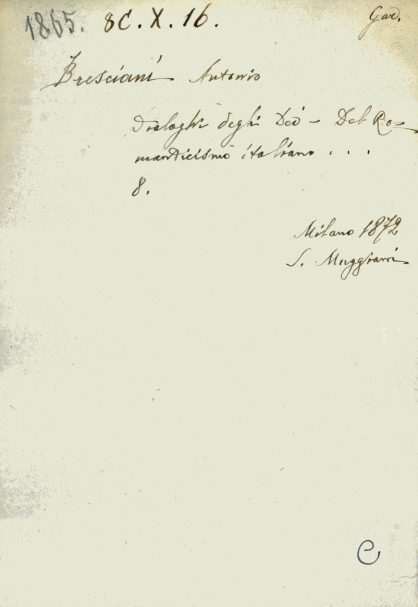 1865. 8C. X. 16. Gad.
Bresciani Antonio
Dialoghi degli Dèi – Del Ro-
manticismo italiano . . .
8.
Milano 1872
S. Muggiani
C